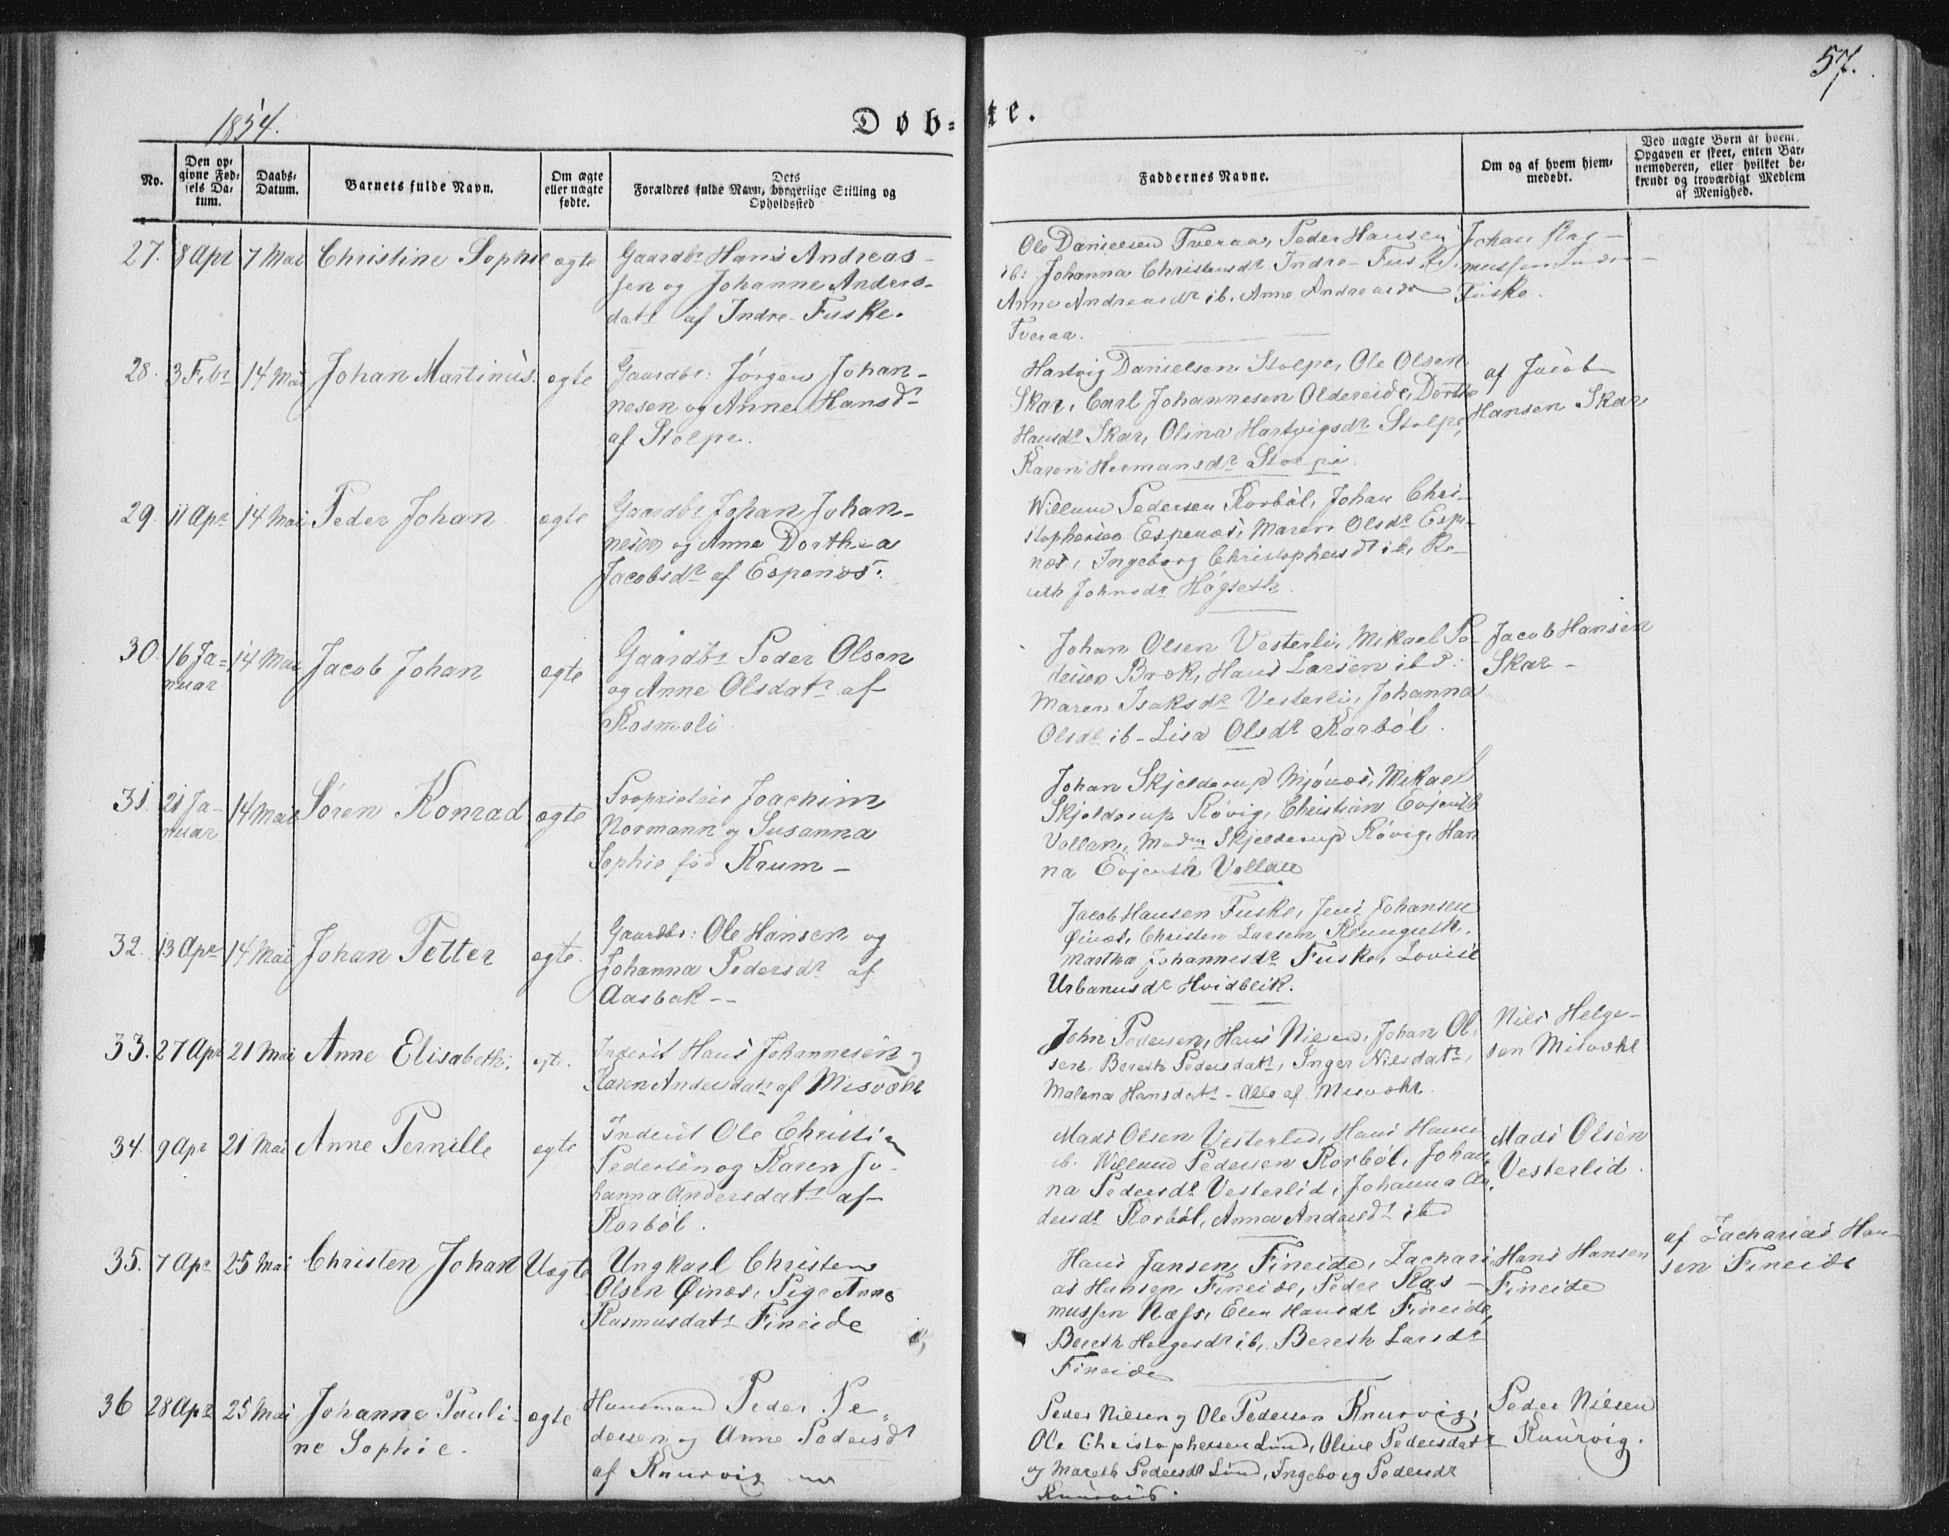 57.
1854.
Døb-te.
No.
Den opgivne Fødsels Datum.
Daabs-Datum.
Barnets fulde Navn.
Om ægte eller uægte fødte.
Dets Forældres fulde Navn, borgerlige Stilling og Opholdssted
Faddernes Navne.
Om og af hvem hjemmedøbt.
Ved uægte Børn at hvem Opgaven er skeet, enten Barnemoderen, eller hvilket bekjendt og troværdigt Medlem af Menighed.
27. 8 Apr 7 Mai Christine Sophie ægte
Gaardbr Hans Andreas-
sen og Johanne Anders-
datr af Indre-Fuske.
Ole Danielsen Tveraa, Peder Hansen
ib. Johanna Christensdr Indre-Fuske,
Anne Andreasdr ib, Anne Andreasdr
Tveraa.
Johan Ras-
mussen Indre-
Fuske.
28. 3 Febr 14 Mai Johan Martinus. ægte
Gaardbr: Jørgen Johan-
nesen og Anne Hansdr
af Stolpe.
Hartvig Danielsen Stolpe, Ole Olsen
Skar, Carl Johannesen Oldereide, Dorthe
Hansdr Skar, Olina Hartvigsdr Stolpe,
Karen Hermansdr Stolpe.
af Jacob
Hansen Skar
29. 11 Apr 14 Mai Peder Johan ægte
Gaardbr Johan Johan-
nesen og Anne Dorthea
Jacobsdr af Espenæs.
Willum Pedersen Korbøl, Johan Chri-
stophersen Espenæs, Maren Olsdr Espe-
næs, Ingeborg Christophersdr ib, Be-
reth Johnsdr Høgseth.
30. 16 Ja-
nuar 14 Mai Jacob Johan ægte
Gaardbr Peder Olsen
og Anne Olsdatr af
Kosmoli
Johan Olsen Vesterli, Mikael Pe-
dersen Bræk, Hans Larsen ibd:
Maren Isaksdr Vesterli, Johanna
Olsdr ib- Lisa Olsdr Korbøl.
Jacob Hansen
Skar-
31. 21 Ja-
nuar 14 Mai Søren Konrad ægte
Proprietair Joachim
Normann og Susanna
Sophie fød Krum-
Johan Skjelderup Mjønæs, Mikael
Skjelderup Røvig, Christian Evjenth
Vollan, Mad Skjelderup Røvig, Han
na Evjenth Vollan
32. 13 Apr 14 Mai Johan Petter ægte.
Gaardbr: Ole Hansen og
Johanna Pedersdr af
Aasbak--
Jacob Hansen Fuske, Jens Johansen
Øinæs, Christen Larsen
Martha Johannesdr Fuske, Lovise
Urbanusdr Hvidblik.
33. 27 Apr 21 Mai Anne Elisabeth. egt.
Inderst Hans Johannesen og
Karen Andersdatr af Misvær
John Pedersen, Hans Nielsen, Johan Ol-
sen, Bereth Pedersdatr, Inger Nilsdatr,
Malena Hansdatr - Alle af Misvær.
Nils Helge-
sen Misvær
34. 9 Apr 21 Mai Anne Pernille ægte
Inderst Ole Christi
Pedersen og Karen Jo-
hanna Andersdatr af
Korbøl.
Mads Olsen Vesterlid, Hans Hansen
ib. Willum Pedersen Korbøl, Johan-
na Pedersdr Vesterlid, Johanna An-
dersdr Korbøl, Anna Andersdr ibd
Mads Olsen
Vesterlid.
35. 7 Apr 25 Mai Christen Johan Uægte
Ungkarl Christen
Olsen Øinæs, Pige Anne
Rasmusdatr Fineide
Hans Jansen Fineide, Zachari-
as Hansen Fineide, Peder Ras-
mussen Næss, Elen Hansdr Fineide,
Bereth Helgesdr ib, Bereth Larsdr
Fineide
Hans Hansen
Fineide
af Zacharias Han-
sen Fineide
36 28 Apr 25 Mai Johanne Pauli-
ne Sophie. ægte
Huusmand Peder Pe-
dersen og Anne Pedersdr
af Knurvig
Peder Nielsen og Ole Pedersen Knurvig,
Ole Christophersen Lund, Oline Pedersdatr
og Mareth Pedersdr Lund, Ingeborg Pedersdr
Knurvig.
Peder Nielsen
Knurvig.